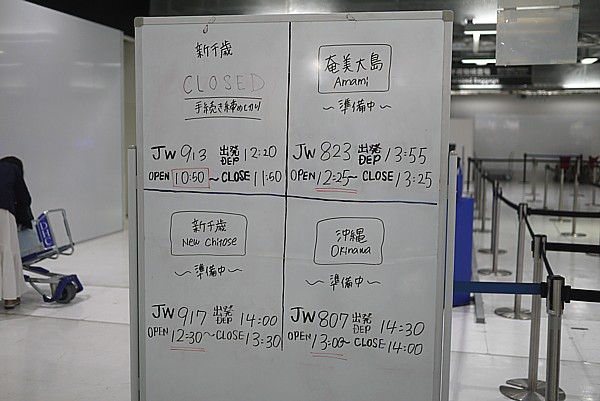 新千歳
CLOSED
手続き締め切り
JW913 出発 DEP 12:20
OPEN 10:50～CLOSE 11:50
奄美大島
Amami
～準備中～
JW823 出発 DEP 13:55
OPEN 12:25～CLOSE 13:25
新千歳
New Chitose
～準備中～
JW917 出発 DEP 14:00
OPEN 12:30～CLOSE 13:30
沖縄
Okinawa
～準備中～
JW807 出発 DEP 14:30
OPEN 13:00～CLOSE 14:00